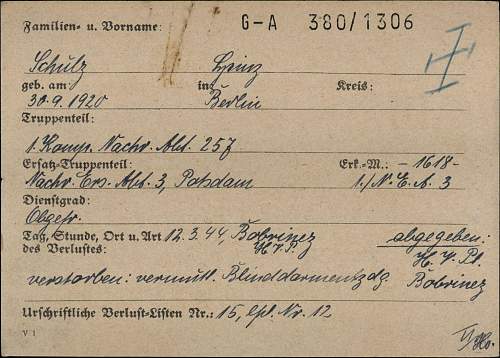 Familien- u. Vorname: G-A 380/1306
Schulz Heinz
geb. am: in: Kreis:
30.9.1920 Berlin
Truppenteil:
1. Komp. Nachr. Abt. 257
Ersatz-Truppenteil: Erk.-M.: -1618-
Nachr. Ers. Abt. 3, Potsdam 1./N.E.A. 3
Dienstgrad:
Obgefr.
Tag, Stunde, Ort u. Art 12.3.44, Bobrinez abgegeben:
des Verlustes: H.V.Pl. H.V.Pl.
verstorben: vermutl. Blinddarmentzdg. Bobrinez
Urschriftliche Verlust-Listen Nr.: 15, lfd. Nr. 12
V 1